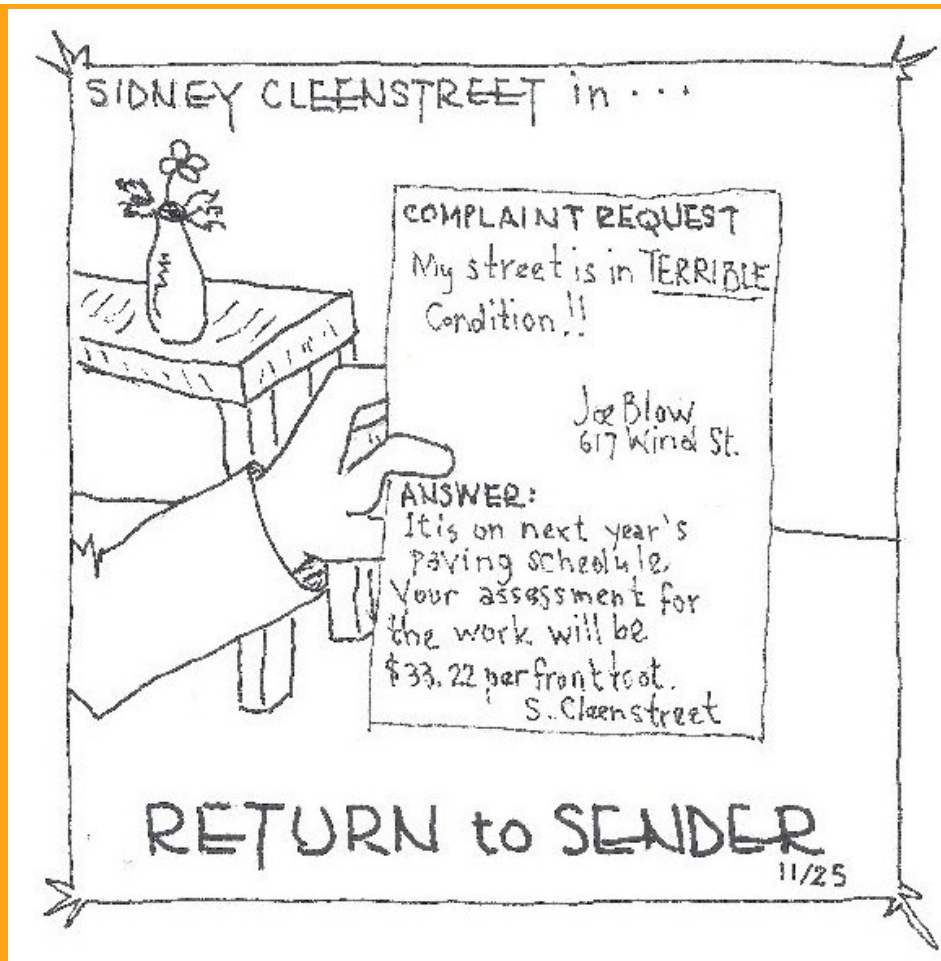 SIDNEY CLEENSTREET in ...
COMPLAINT REQUEST
My street is in TERRIBLE
Condition!!
Joe Blow
617 Wind St.
ANSWER:
It is on next year's
paving schedule.
Your assessment for
the work will be
$33.22 per front foot.
S. Cleenstreet
RETURN to SENDER
11/25